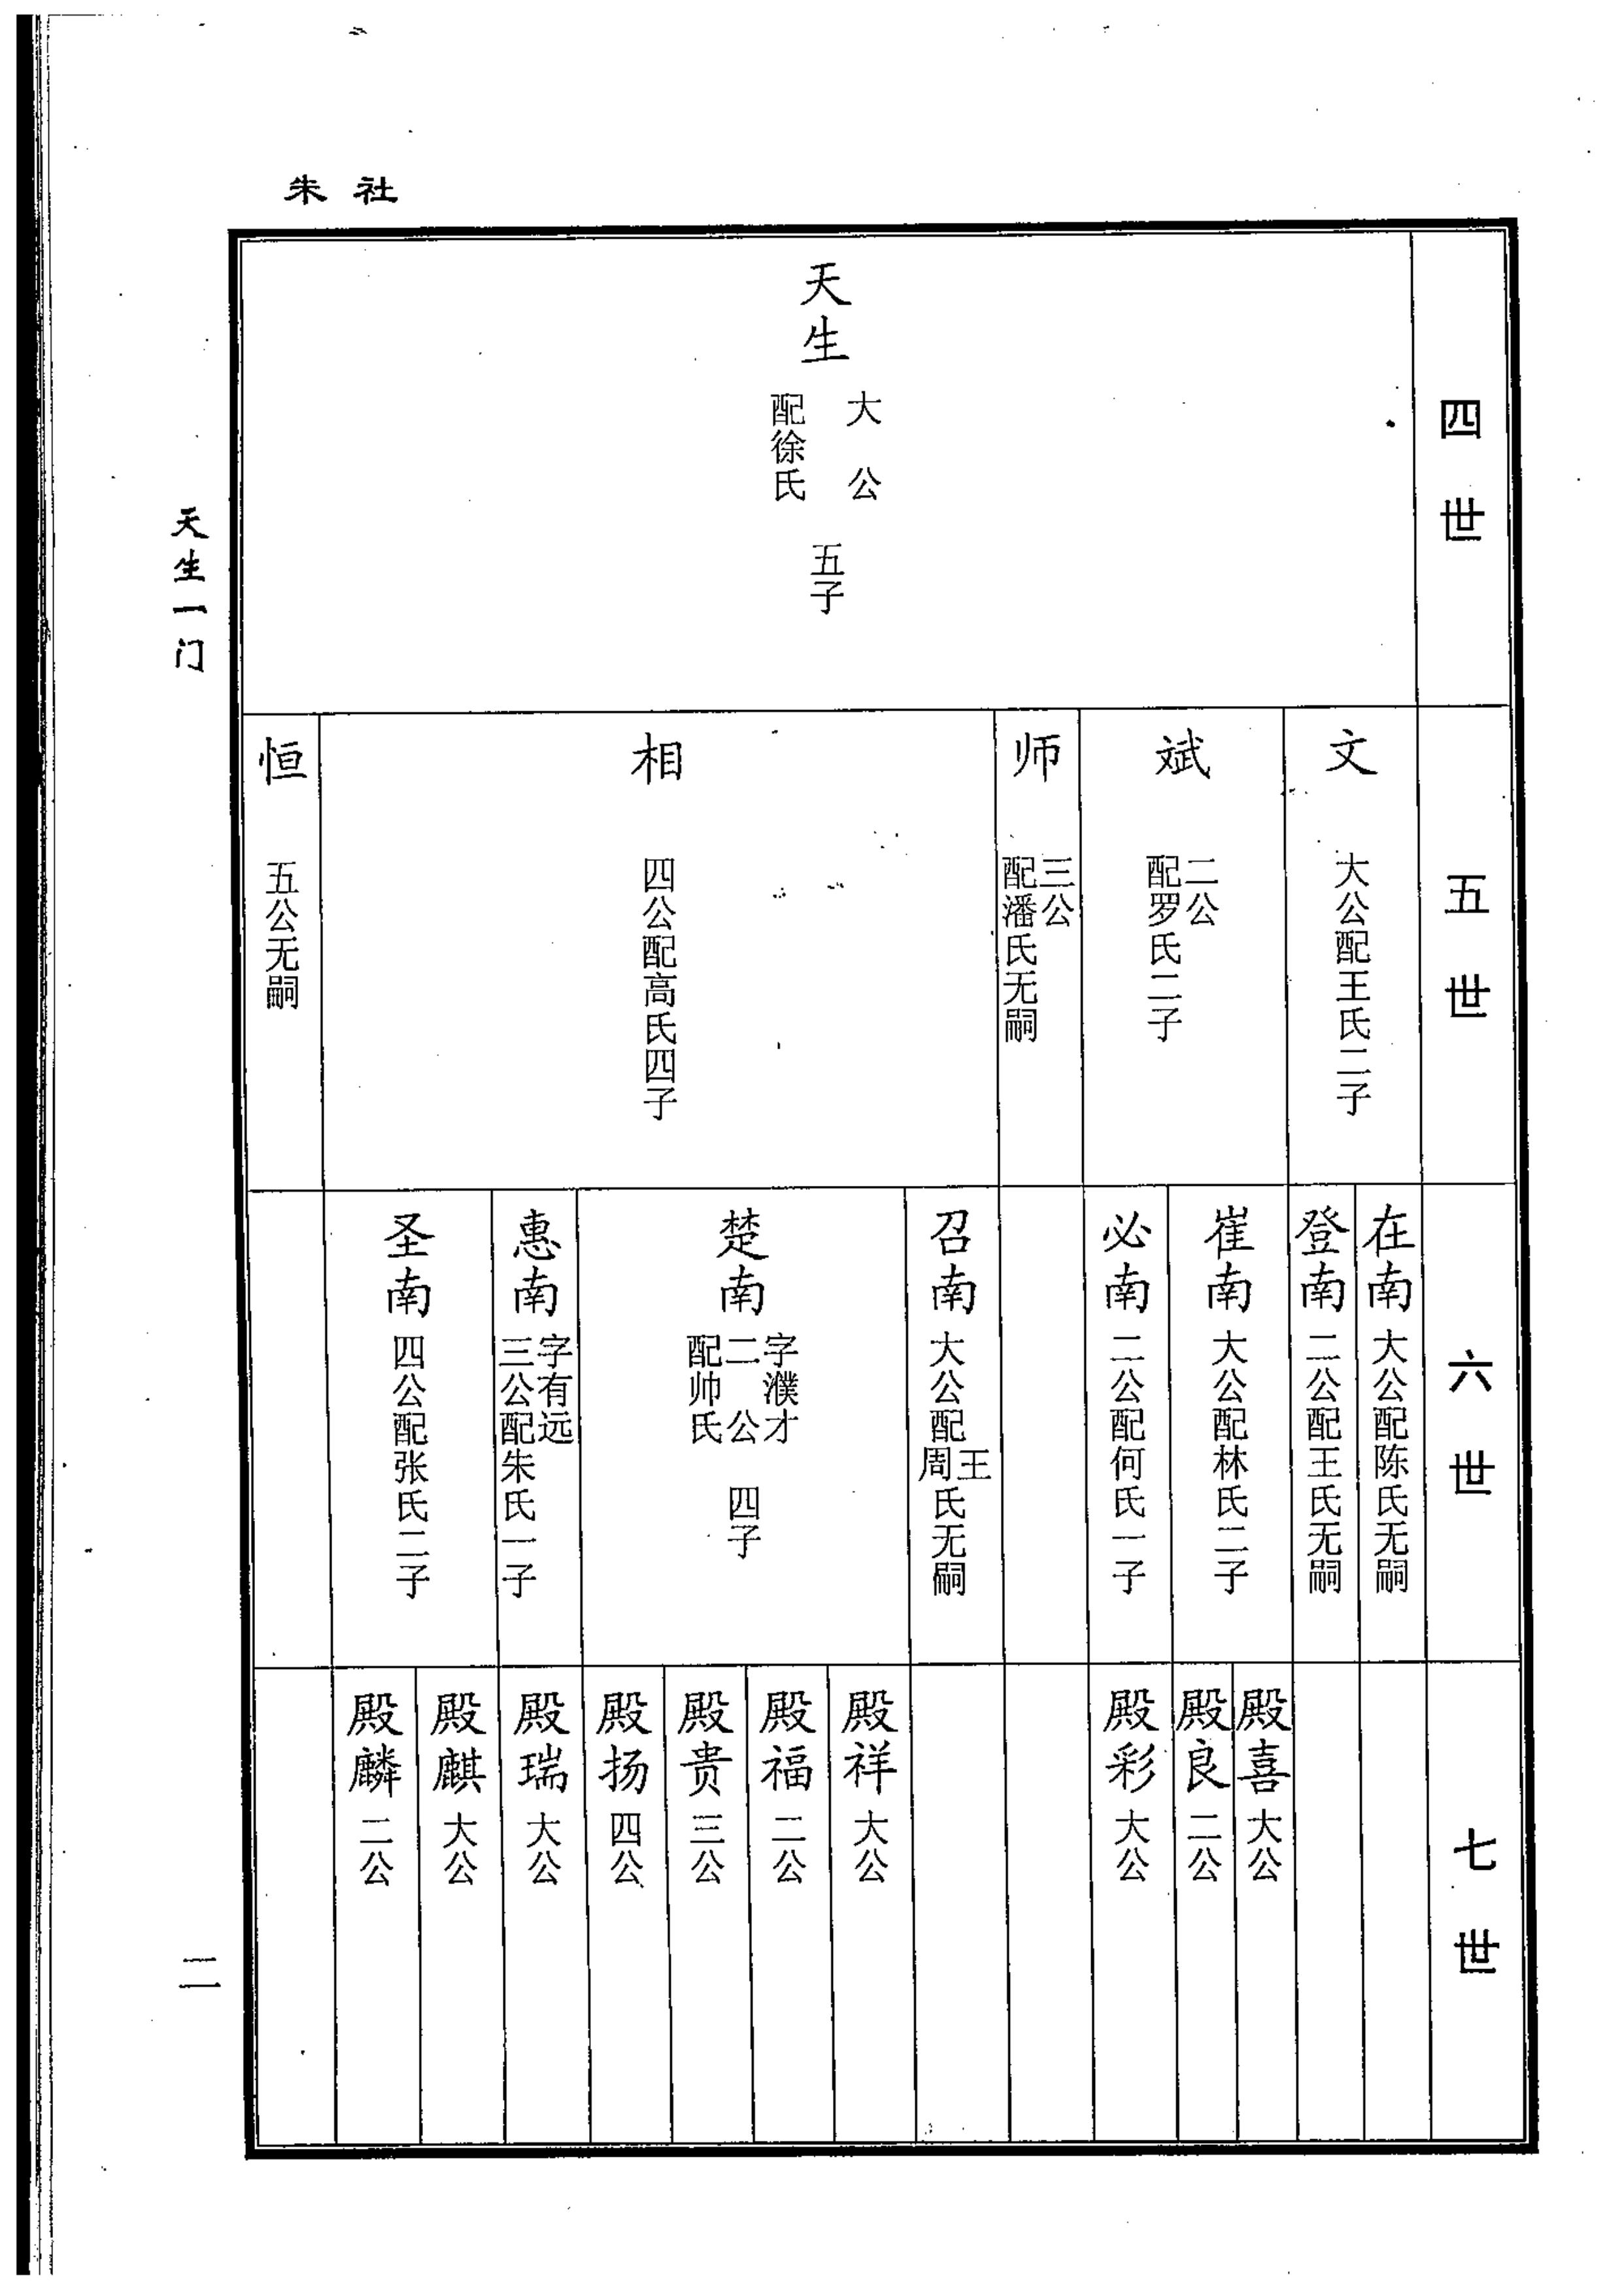 朱社
四世
天生
大公
配徐氏
五子
五世
文
大公配王氏二子
斌
二公
配罗氏二子
师
三公
配潘氏无嗣
相
四公配高氏四子
恒
五公无嗣
六世
在南
大公配陈氏无嗣
登南
二公配王氏无嗣
崔南
大公配林氏二子
必南
二公配何氏一子
召南
大公配
王
周
氏无嗣
楚南
字濮才
二公
配帅氏
四子
惠南
字有远
三公配朱氏一子
圣南
四公配张氏二子
七世
殿喜
大公
殿良
二公
殿彩
大公
殿祥
大公
殿福
二公
殿贵
三公
殿扬
四公
殿瑞
大公
殿麒
大公
殿麟
二公
天生一门
二